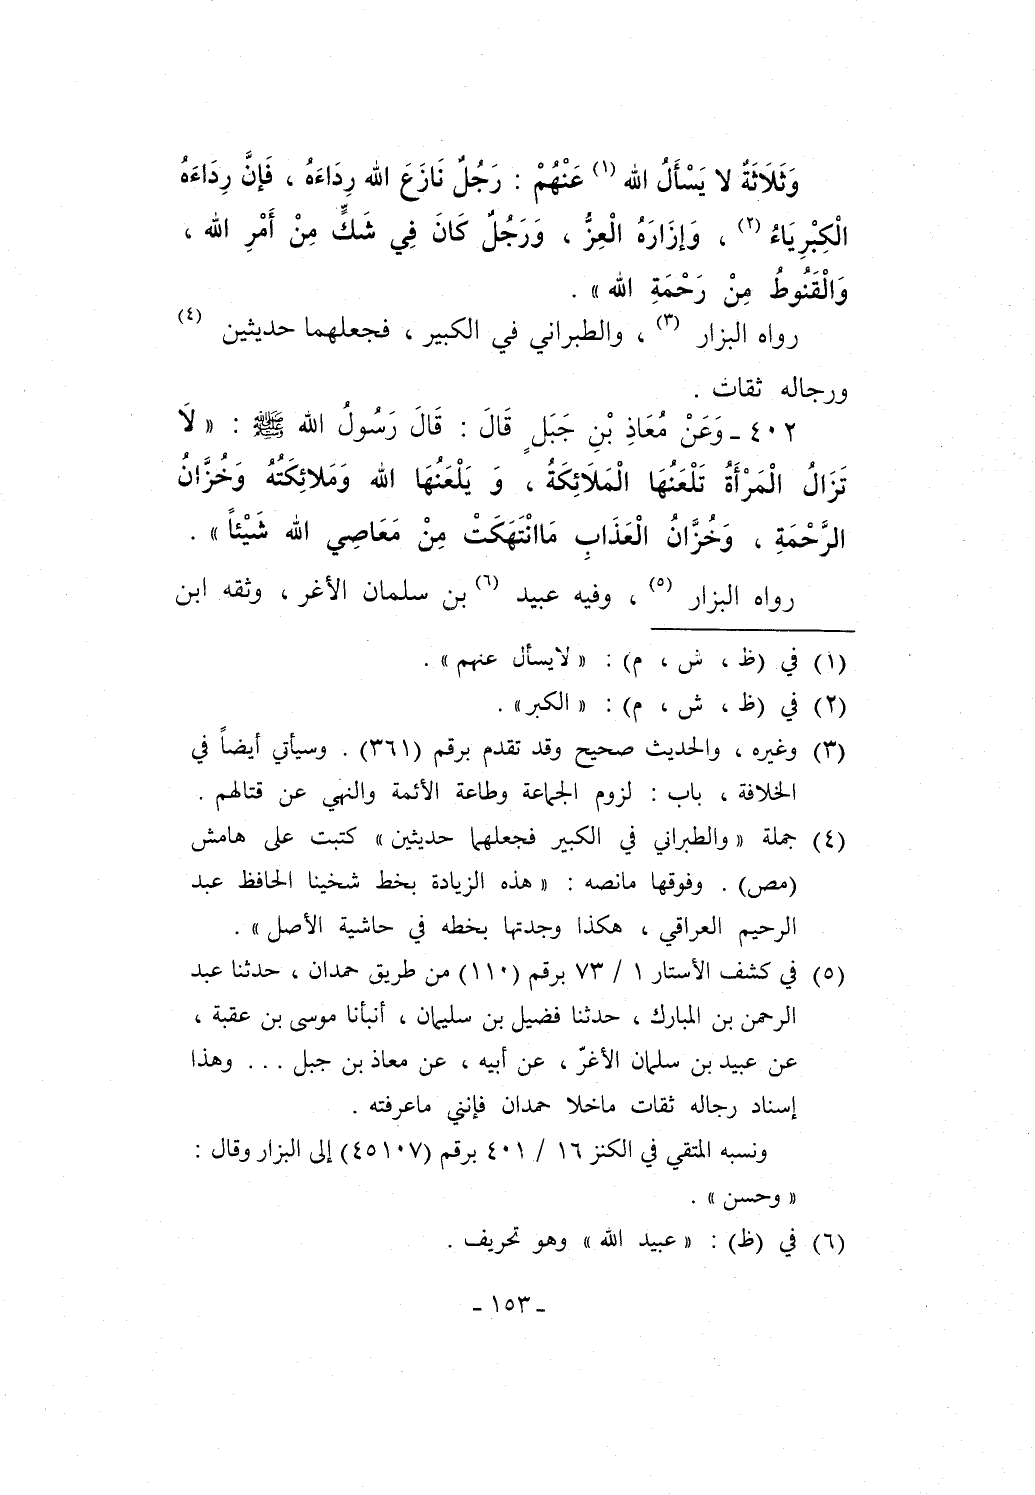 وَثَلَاثَةٌ لا يَسْأَلُ الله (١) عَنْهُمْ : رَجُلٌ نَازَعَ الله رِدَاءَهُ ، فَإِنَّ رِدَاءَهُ
الْكِبْرِيَاءُ (٢) ، وَإِزَارَهُ الْعِزُّ ، وَرَجُلٌ كَانَ فِي شَكٍّ مِنْ أَمْرِ الله ،
وَالْقَنُوطُ مِنْ رَحْمَةِ الله » .
رواه البزار (٣) ، والطبراني في الكبير ، فجعلهما حديثين (٤)
ورجاله ثقات .
٤٠٢ ـ وَعَنْ مُعَاذِ بْنِ جَبَلٍ قَالَ : قَالَ رَسُولُ الله ﷺ : « لَا
تَزَالُ الْمَرْأَةُ تَلْعَنُهَا الْمَلَائِكَةُ ، وَ يَلْعَنُهَا الله وَمَلائِكَتُهُ وَخُزَّانُ
الرَّحْمَةِ ، وَخُزَّانُ الْعَذَابِ مَاانْتَهَكَتْ مِنْ مَعَاصِي الله شَيْئاً » .
رواه البزار (٥) ، وفيه عبيد (٦) بن سلمان الأغر ، وثقه ابن
(١) في (ظ ، ش ، م) : « لايسأل عنهم » .
(٢) في (ظ ، ش ، م) : « الكبر » .
(٣) وغيره ، والحديث صحيح وقد تقدم برقم (٣٦١) . وسيأتي أيضاً في
الخلافة ، باب : لزوم الجماعة وطاعة الأئمة والنهي عن قتالهم .
(٤) جملة « والطبراني في الكبير فجعلهما حديثين » كتبت على هامش
(مص) . وفوقها مانصه : « هذه الزيادة بخط شخينا الحافظ عبد
الرحيم العراقي ، هكذا وجدتها بخطه في حاشية الأصل » .
(٥) في كشف الأستار ١ / ٧٣ برقم (١١٠) من طريق حمدان ، حدثنا عبد
الرحمن بن المبارك ، حدثنا فضيل بن سليمان ، أنبأنا موسى بن عقبة ،
عن عبيد بن سلمان الأغرّ ، عن أبيه ، عن معاذ بن جبل ... وهذا
إسناد رجاله ثقات ماخلا حمدان فإنني ماعرفته .
ونسبه المتقي في الكنز ١٦ / ٤٠١ برقم (٤٥١٠٧) إلى البزار وقال :
« وحسن » .
(٦) في (ظ) : « عبيد الله » وهو تحريف .
ـ ١٥٣ ـ